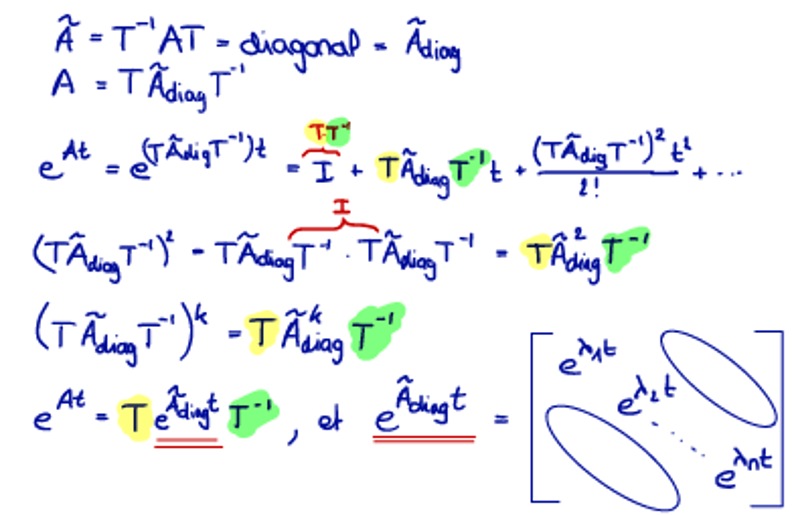 Ã = T⁻¹AT = diagonal = Ã_diag
A = TÃ_diagT⁻¹
T·T⁻¹
e^{At} = e^{(TÃ_digT⁻¹)t} = I + TÃ_diagT⁻¹t + (TÃ_digT⁻¹)²t²/2! + ...
I
(TÃ_diagT⁻¹)² = TÃ_diagT⁻¹ · TÃ_diagT⁻¹ = TÃ²_diagT⁻¹
(TÃ_diagT⁻¹)^k = TÃ^k_diagT⁻¹
e^{At} = Te^{Ã_diagt}T⁻¹, et e^{Ã_diagt} = [e^{λ₁t} e^{λ₂t} ... e^{λnt}]